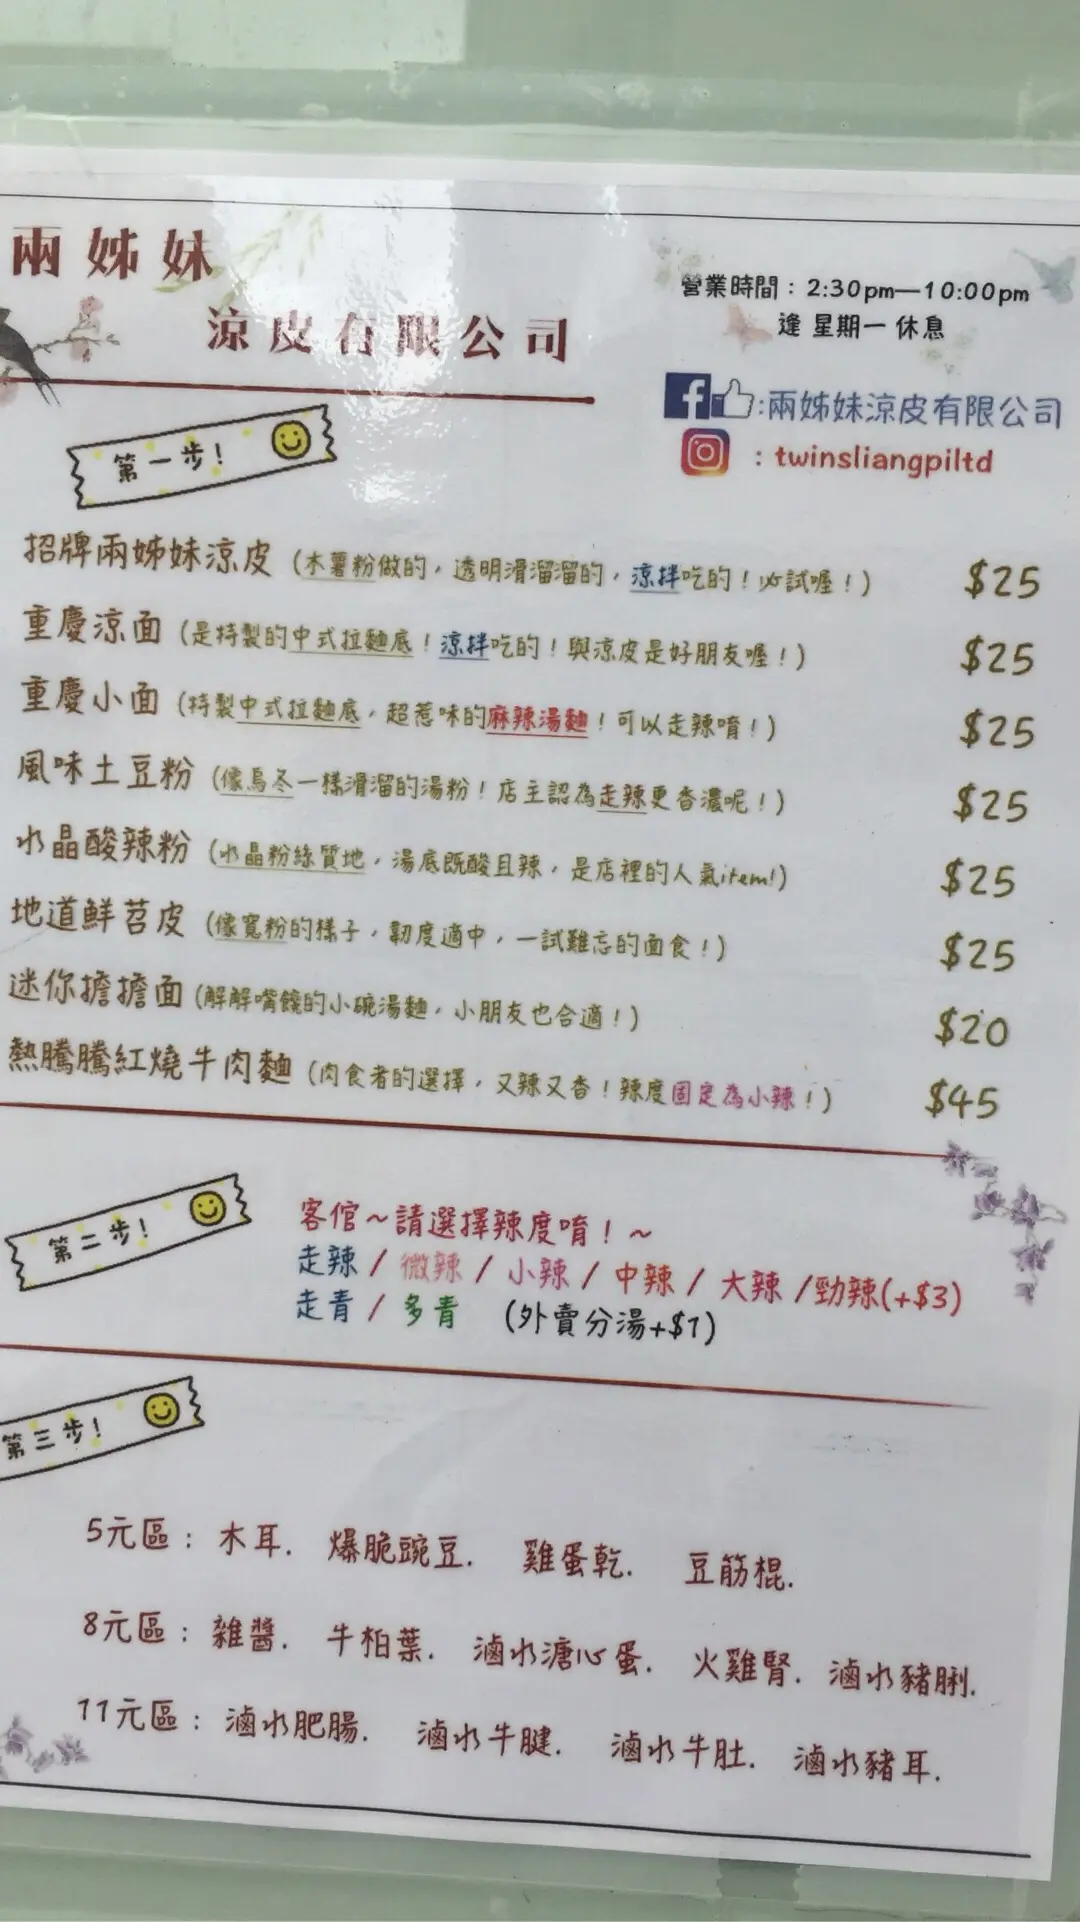 兩姊妹
涼皮有限公司
營業時間：2:30pm—10:00pm
逢 星期一 休息
:兩姊妹涼皮有限公司
: twinsliangpiltd
第一步！
招牌兩姊妹涼皮 (木薯粉做的，透明滑溜溜的，涼拌吃的！必試喔！) $25
重慶涼面 (是特製的中式拉麵底！涼拌吃的！與涼皮是好朋友喔！) $25
重慶小面 (特製中式拉麵底，超惹味的麻辣湯麵！可以走辣唷！) $25
風味土豆粉 (像烏冬一樣滑溜的湯粉！店主認為走辣更香濃呢！) $25
水晶酸辣粉 (水晶粉絲質地，湯底既酸且辣，是店裡的人氣item!) $25
地道鮮苕皮 (像寬粉的樣子，韌度適中，一試難忘的面食！) $25
迷你擔擔面 (解解嘴饞的小碗湯麵，小朋友也合適！) $20
熱騰騰紅燒牛肉麵 (肉食者的選擇，又辣又香！辣度固定為小辣！) $45
第二步！
客倌~請選擇辣度唷！~
走辣 / 微辣 / 小辣 / 中辣 / 大辣 /勁辣(+$3)
走青 / 多青 (外賣分湯+$1)
第三步！
5元區：木耳. 爆脆豌豆. 雞蛋乾. 豆筋棍.
8元區：雜醬. 牛柏葉. 滷水溏心蛋. 火雞腎. 滷水豬脷.
11元區：滷水肥腸. 滷水牛腱. 滷水牛肚. 滷水豬耳.